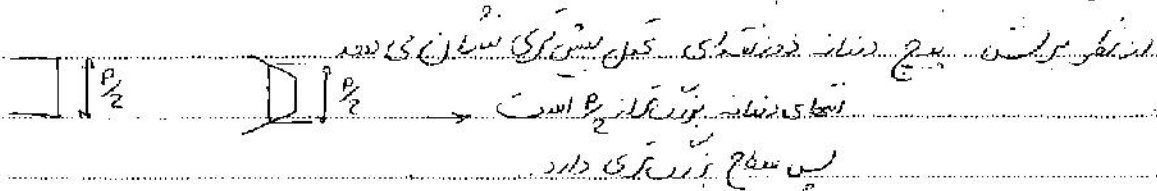 از نظر برش پیچ دندانه ذوزنقه‌ای تحمل بیش تری نشان می دهد
P/2 P/2 انتهای دندانه بزرگ تر از P/2 است
پس سطح بزرگ تری دارد.